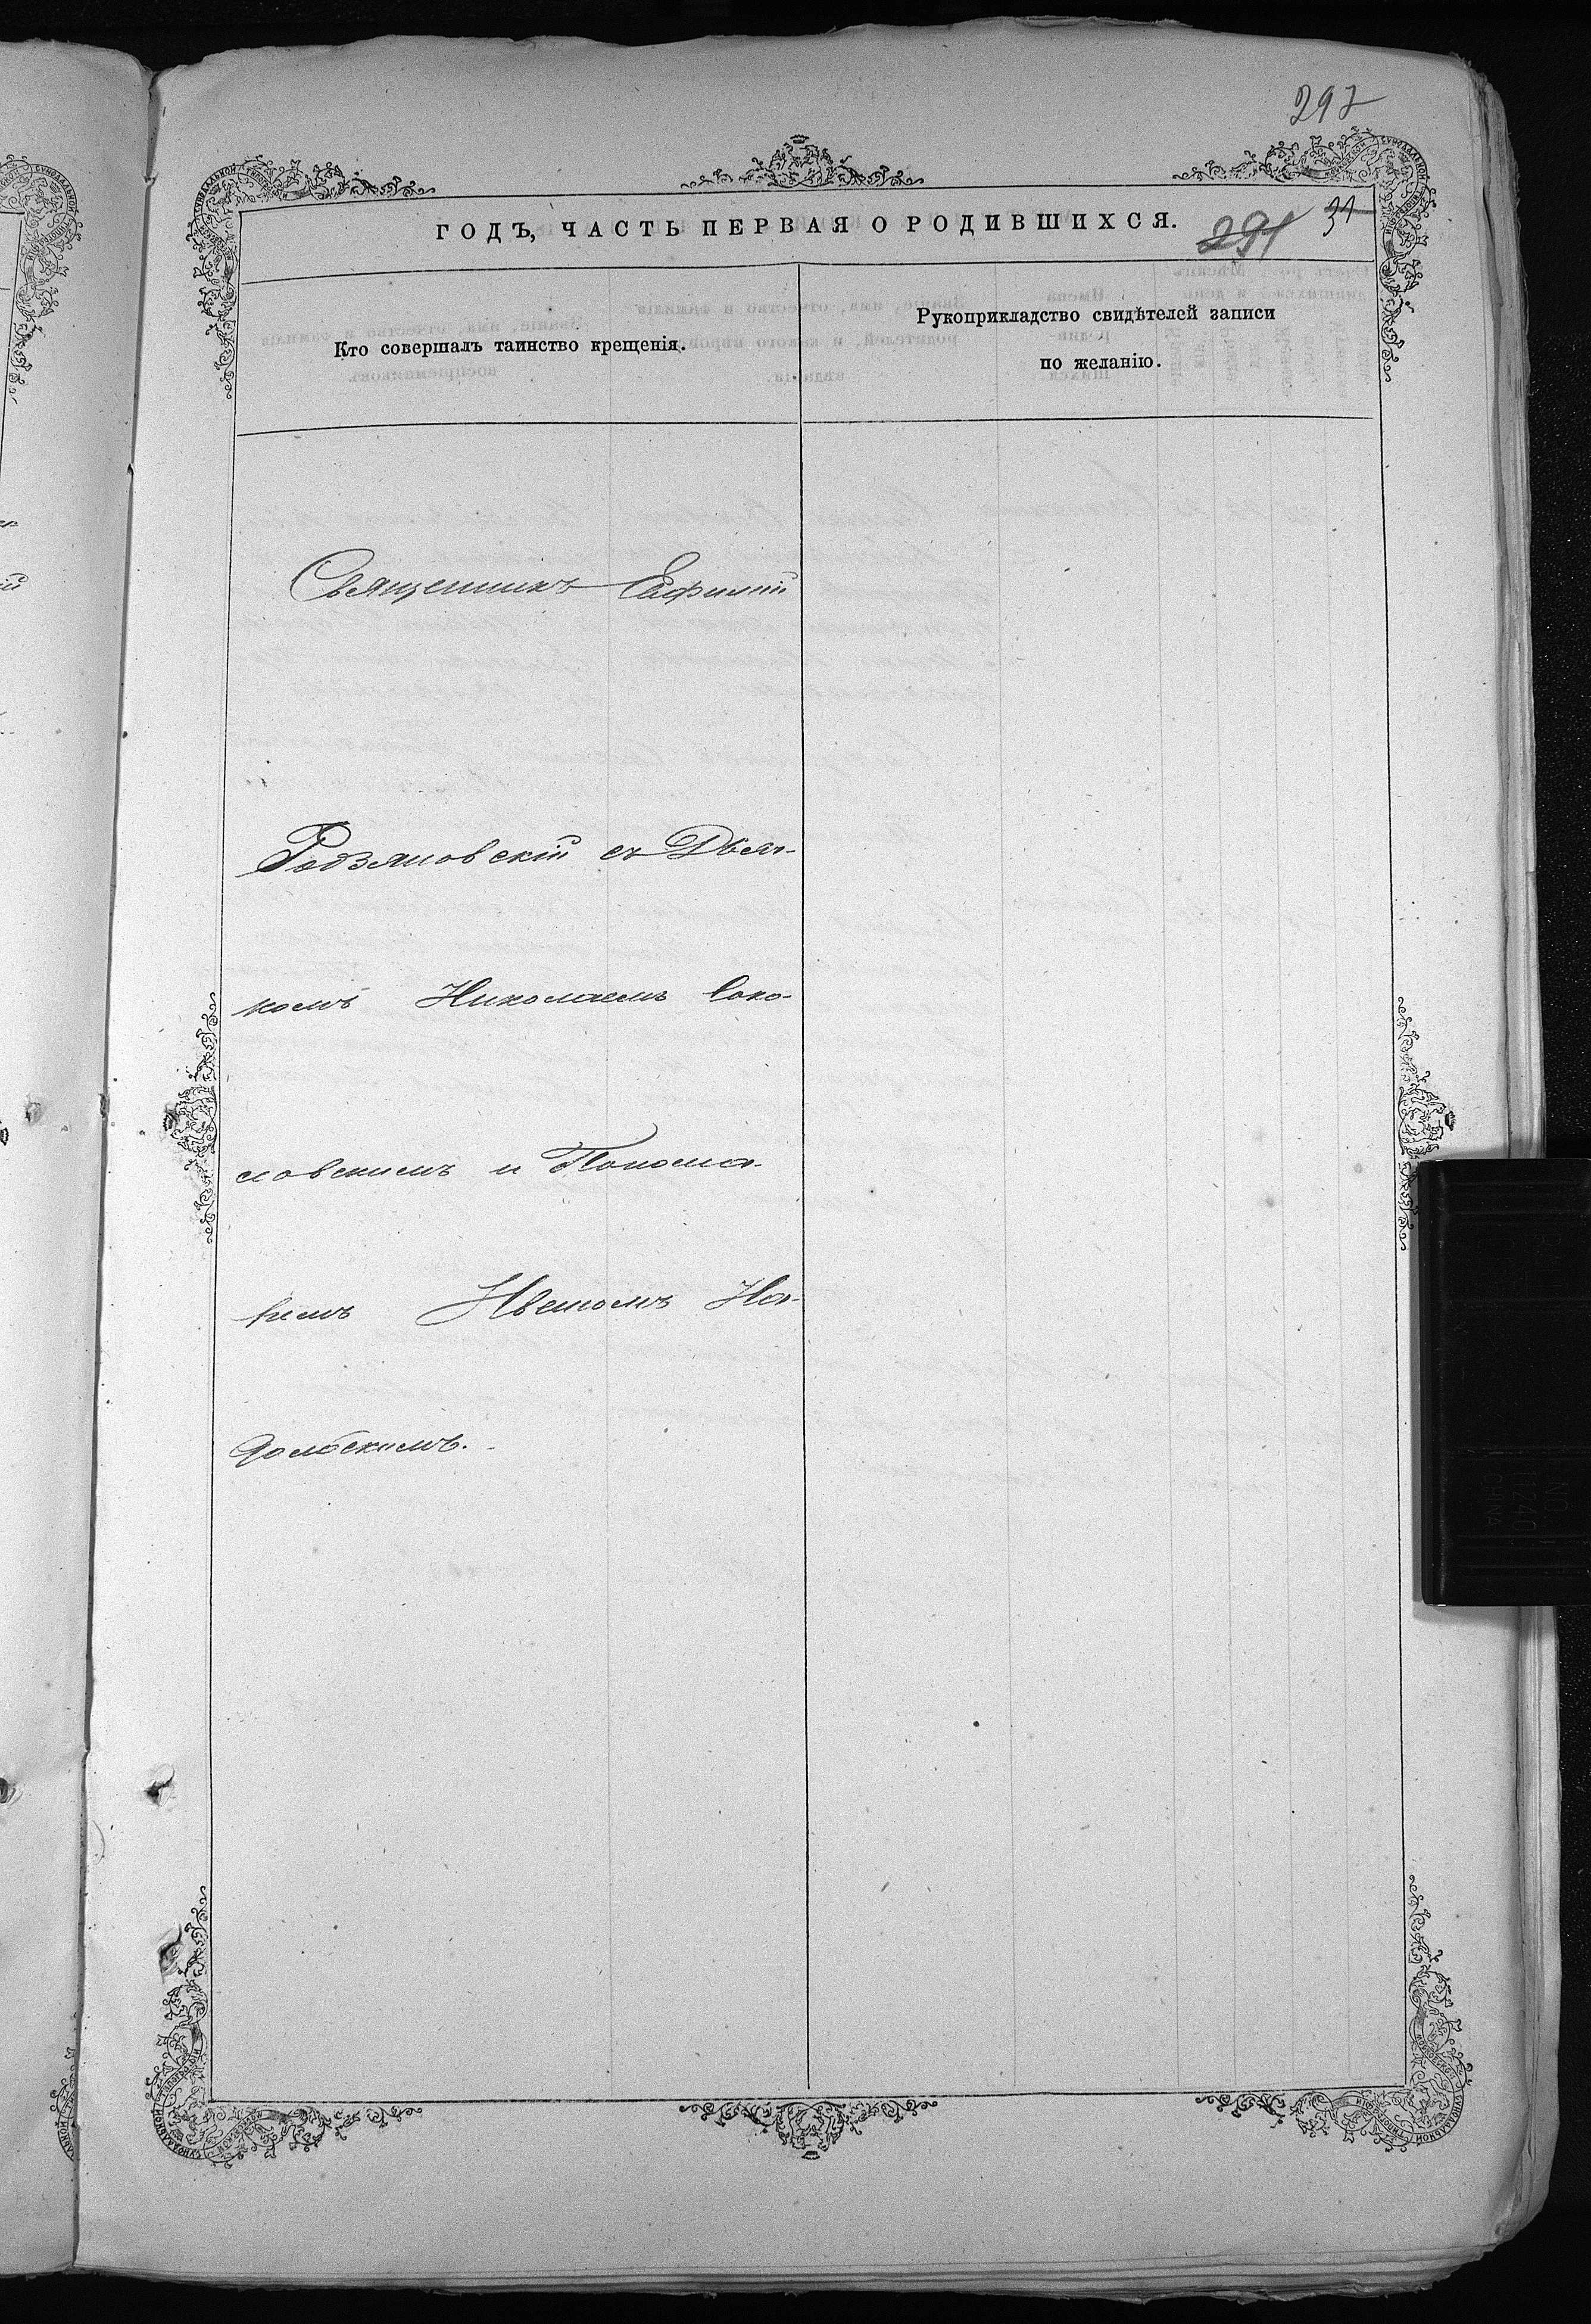 297
ГОДЪ, ЧАСТЬ ПЕРВАЯ О РОДИВШИХСЯ.
291 31
Кто совершалъ таинство крещенія.
Рукоприкладство свидѣтелей записи
по желанію.
Священникъ Евфимій
Родзяновскій съ Дья-
комъ Николаемъ Соко-
ловскимъ и Понома-
ремъ Иваномъ На-
дольскимъ.